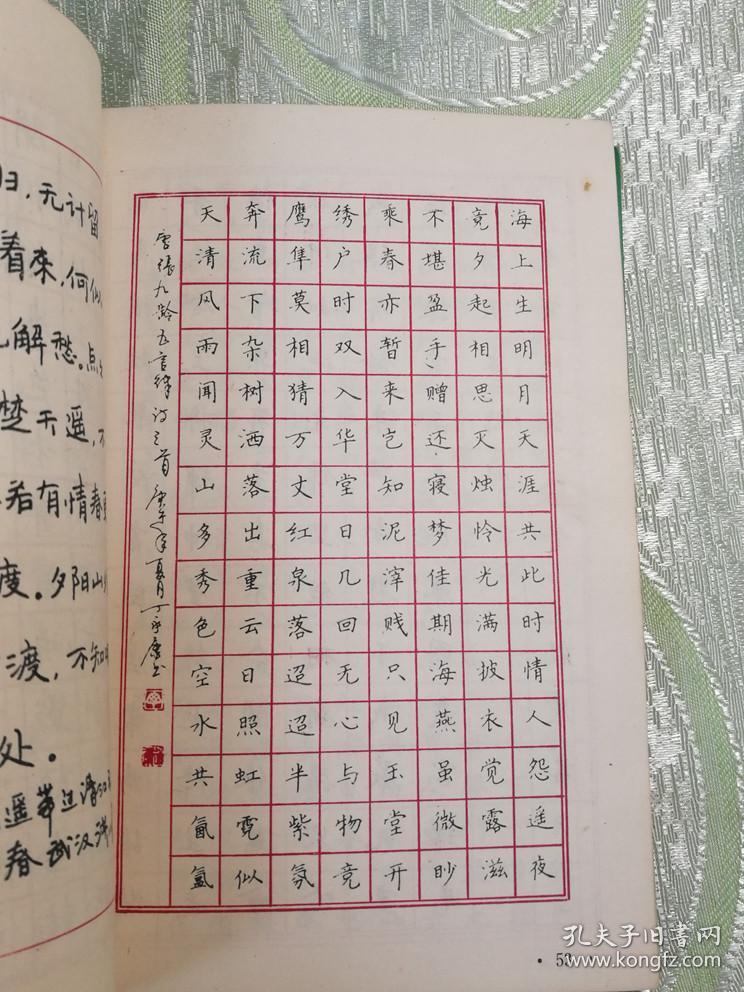 海上生明月天涯共此时情人怨遥夜
竟夕起相思灭烛怜光满披衣觉露滋
不堪盈手赠还寝梦佳期海燕虽微眇
乘春亦暂来岂知泥滓贱只见玉堂开
绣户时双入华堂日几回无心与物竞
鹰隼莫相猜万丈红泉落迢迢半紫氛
奔流下杂树洒落出重云日照虹霓似
天清风雨闻灵山多秀色空水共氤氲
唐张九龄五言律诗三首 庚午年夏月丁永康书
归，无计留
着来，何似
解愁。点
楚天遥，不
若有情春
度。夕阳山
渡，不知
处。
遥带过清江
春武汉
·53
孔夫子旧书网
www.kongfz.com